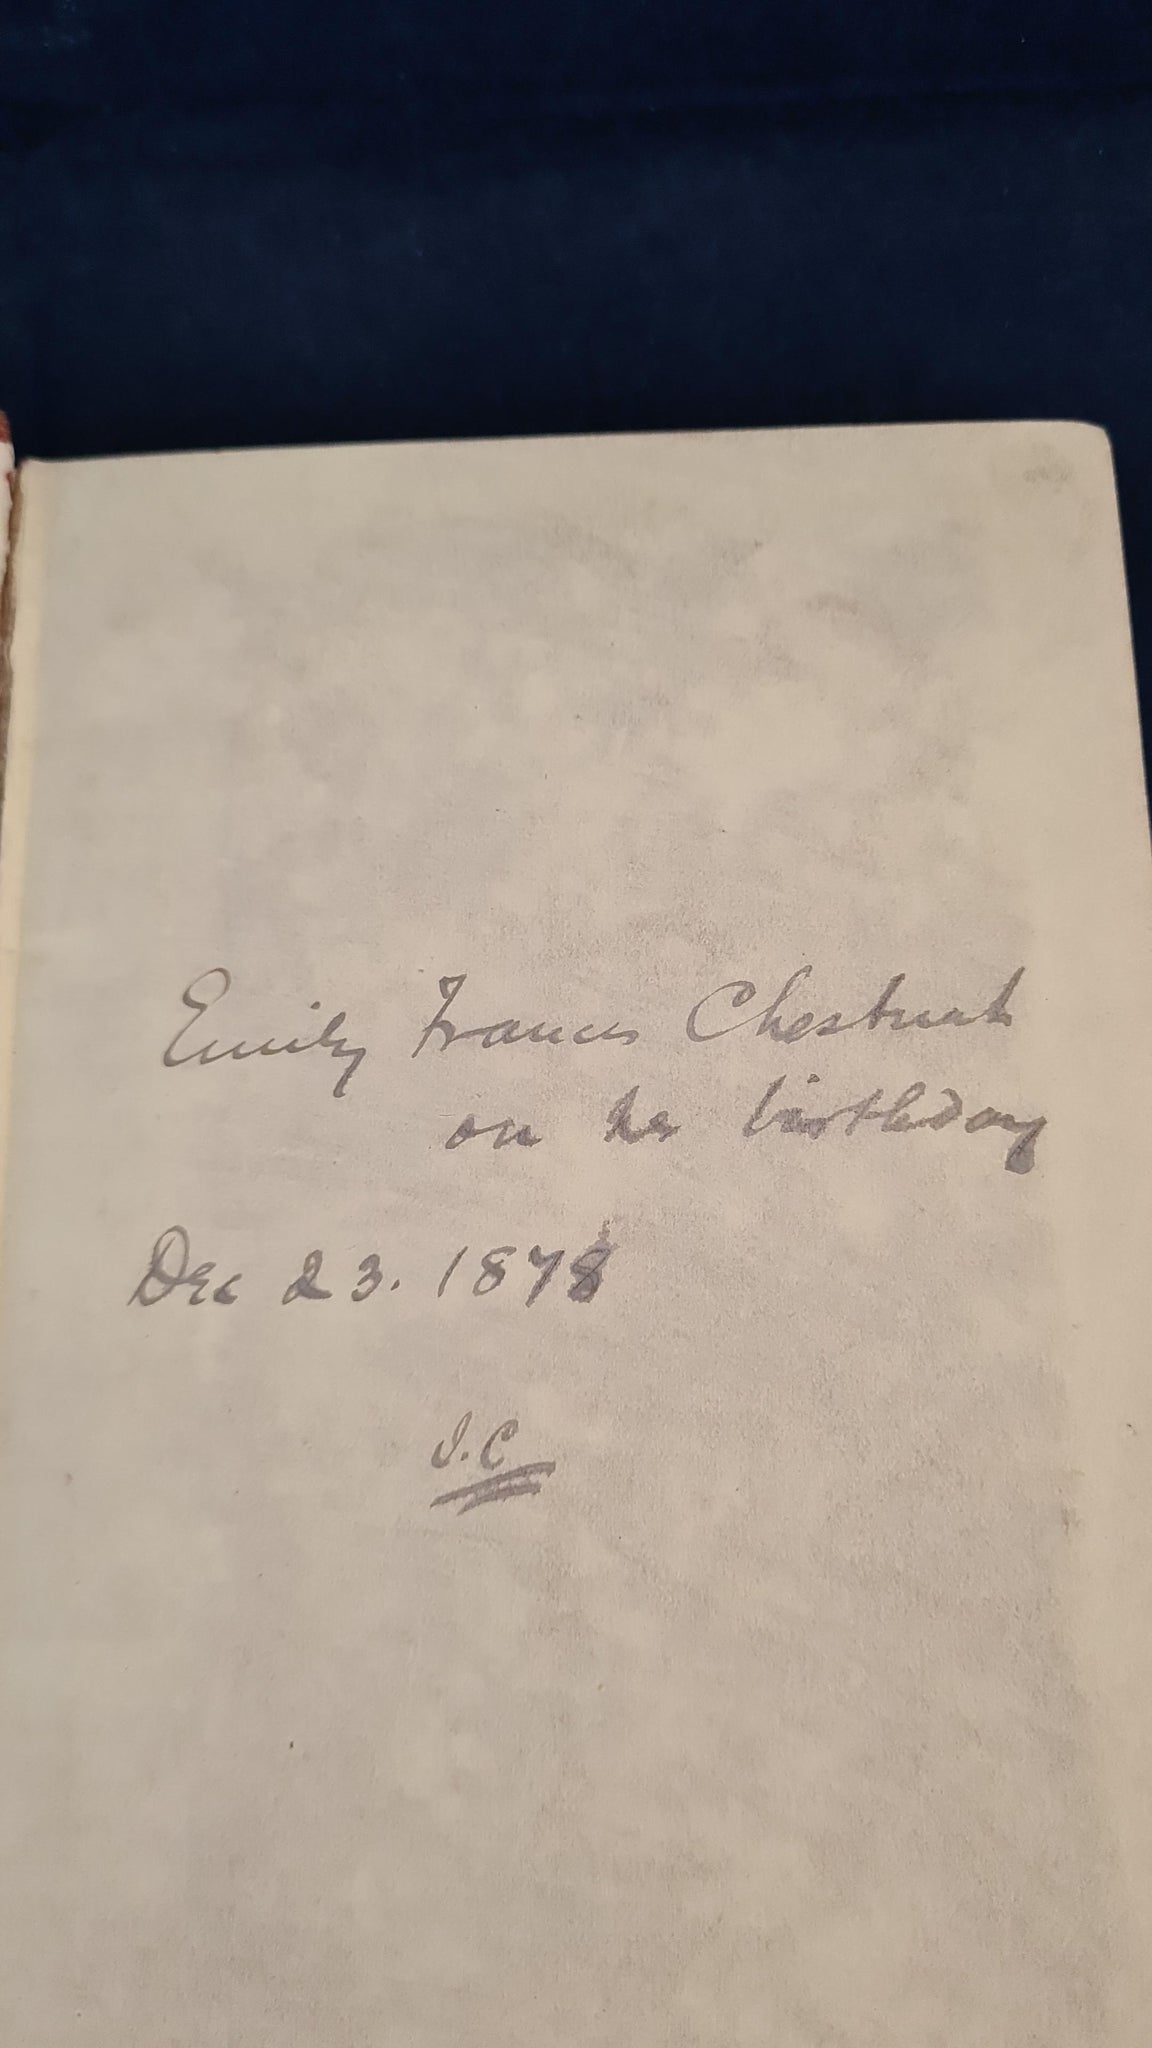 Emily Frances Chestnut
on her birthday
Dec 23. 1878
J.C